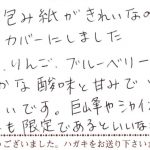 包み紙がきれいなの
カバーにしました
りんご、ブルーベリー
かな酸味と甘みで
いです。巨峰やシャイ
も限定であるといいな
ございました。ハガキをお送り下さい